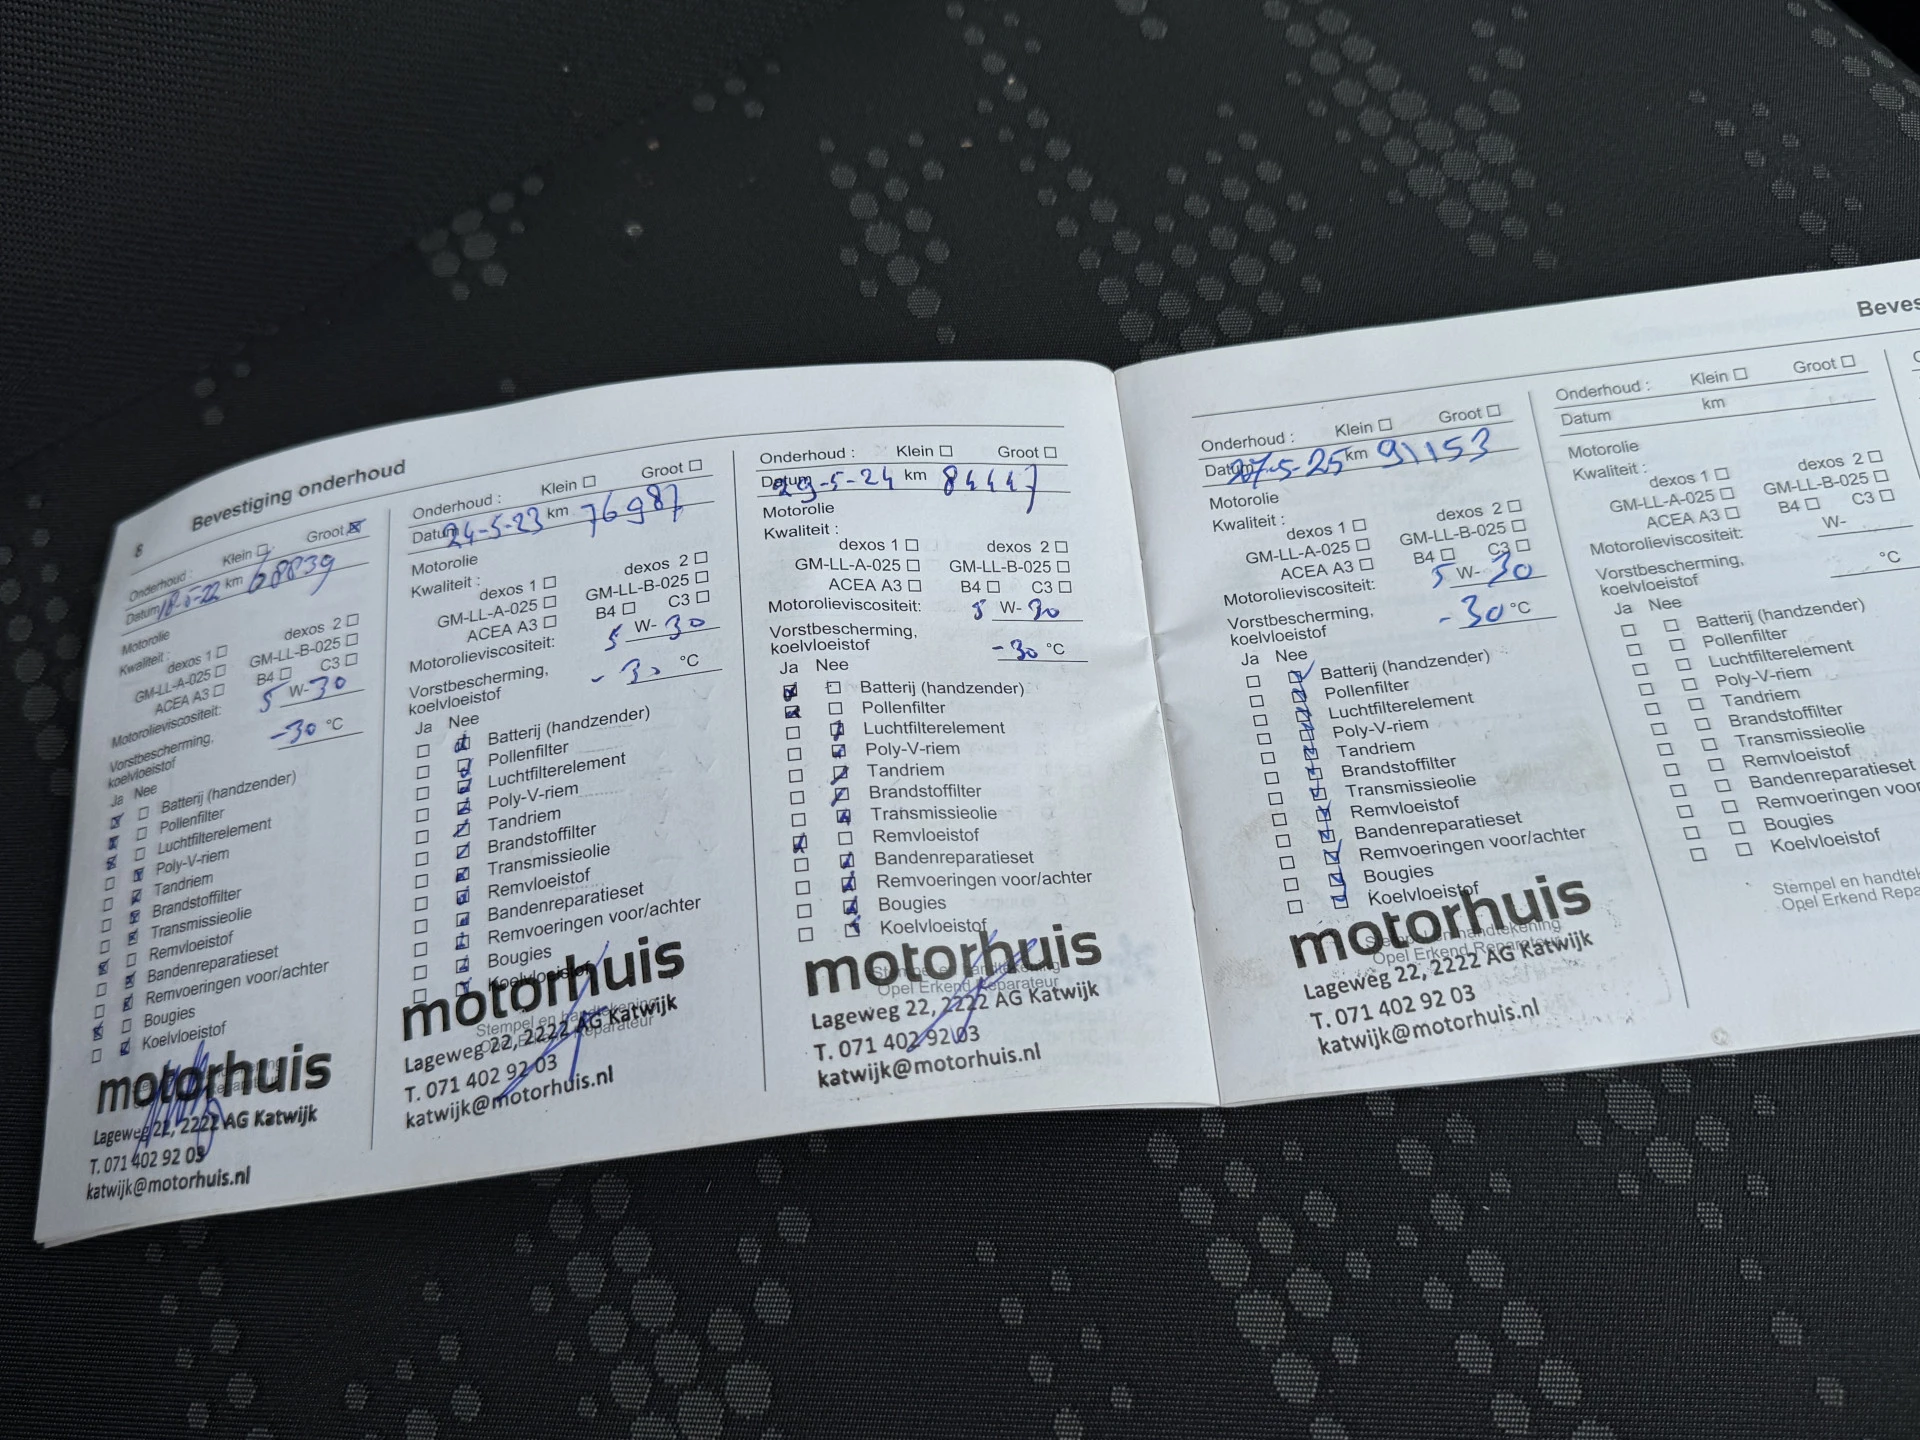 8 Bevestiging onderhoud
Onderhoud : Klein Groot
Datum 18-5-22 km 68839
Motorolie
Kwaliteit :
dexos 1 dexos 2
GM-LL-A-025 GM-LL-B-025
ACEA A3 B4 C3
Motorolieviscositeit: 5 W-30
Vorstbescherming,
koelvloeistof -30 °C
Ja Nee
Batterij (handzender)
Pollenfilter
Luchtfilterelement
Poly-V-riem
Tandriem
Brandstoffilter
Transmissieolie
Remvloeistof
Bandenreparatieset
Remvoeringen voor/achter
Bougies
Koelvloeistof
motorhuis
Lageweg 22, 2222 AG Katwijk
T. 071 402 92 03
katwijk@motorhuis.nl
Onderhoud : Klein Groot
Datum 24-5-23 km 76987
Motorolie
Kwaliteit :
dexos 1 dexos 2
GM-LL-A-025 GM-LL-B-025
ACEA A3 B4 C3
Motorolieviscositeit: 5 W- 30
Vorstbescherming,
koelvloeistof - 30 °C
Ja Nee
Batterij (handzender)
Pollenfilter
Luchtfilterelement
Poly-V-riem
Tandriem
Brandstoffilter
Transmissieolie
Remvloeistof
Bandenreparatieset
Remvoeringen voor/achter
Bougies
Koelvloeistof
motorhuis
Stempel en handtekening
Lageweg 22, 2222 AG Katwijk
Opel Erkend Reparateur
T. 071 402 92 03
katwijk@motorhuis.nl
Onderhoud : Klein Groot
Datum 29-5-24 km 84447
Motorolie
Kwaliteit :
dexos 1 dexos 2
GM-LL-A-025 GM-LL-B-025
ACEA A3 B4 C3
Motorolieviscositeit: 5 W- 30
Vorstbescherming,
koelvloeistof -30 °C
Ja Nee
Batterij (handzender)
Pollenfilter
Luchtfilterelement
Poly-V-riem
Tandriem
Brandstoffilter
Transmissieolie
Remvloeistof
Bandenreparatieset
Remvoeringen voor/achter
Bougies
Koelvloeistof
motorhuis
Stempel en handtekening
Opel Erkend Reparateur
Lageweg 22, 2222 AG Katwijk
T. 071 402 92 03
katwijk@motorhuis.nl
Beves
Onderhoud : Klein Groot
Datum 27-5-25 km 91153
Motorolie
Kwaliteit :
dexos 1 dexos 2
GM-LL-A-025 GM-LL-B-025
ACEA A3 B4 C3
Motorolieviscositeit: 5 W- 30
Vorstbescherming,
koelvloeistof -30 °C
Ja Nee
Batterij (handzender)
Pollenfilter
Luchtfilterelement
Poly-V-riem
Tandriem
Brandstoffilter
Transmissieolie
Remvloeistof
Bandenreparatieset
Remvoeringen voor/achter
Bougies
Koelvloeistof
motorhuis
Stempel en handtekening
Opel Erkend Reparateur
Lageweg 22, 2222 AG Katwijk
T. 071 402 92 03
katwijk@motorhuis.nl
Onderhoud : Klein Groot
Datum km
Motorolie
Kwaliteit :
dexos 1 dexos 2
GM-LL-A-025 GM-LL-B-025
ACEA A3 B4 C3
Motorolieviscositeit: W-
Vorstbescherming,
koelvloeistof °C
Ja Nee
Batterij (handzender)
Pollenfilter
Luchtfilterelement
Poly-V-riem
Tandriem
Brandstoffilter
Transmissieolie
Remvloeistof
Bandenreparatieset
Remvoeringen voor
Bougies
Koelvloeistof
Stempel en handtek
Opel Erkend Repara